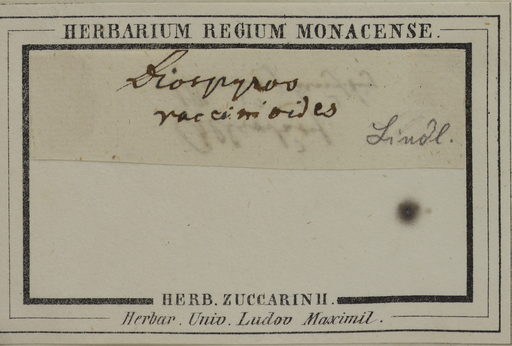 HERBARIUM REGIUM MONACENSE.
Diospyros
vaccinioides
Lindl.
HERB. ZUCCARINII.
Herbar. Univ. Ludov Maximil.